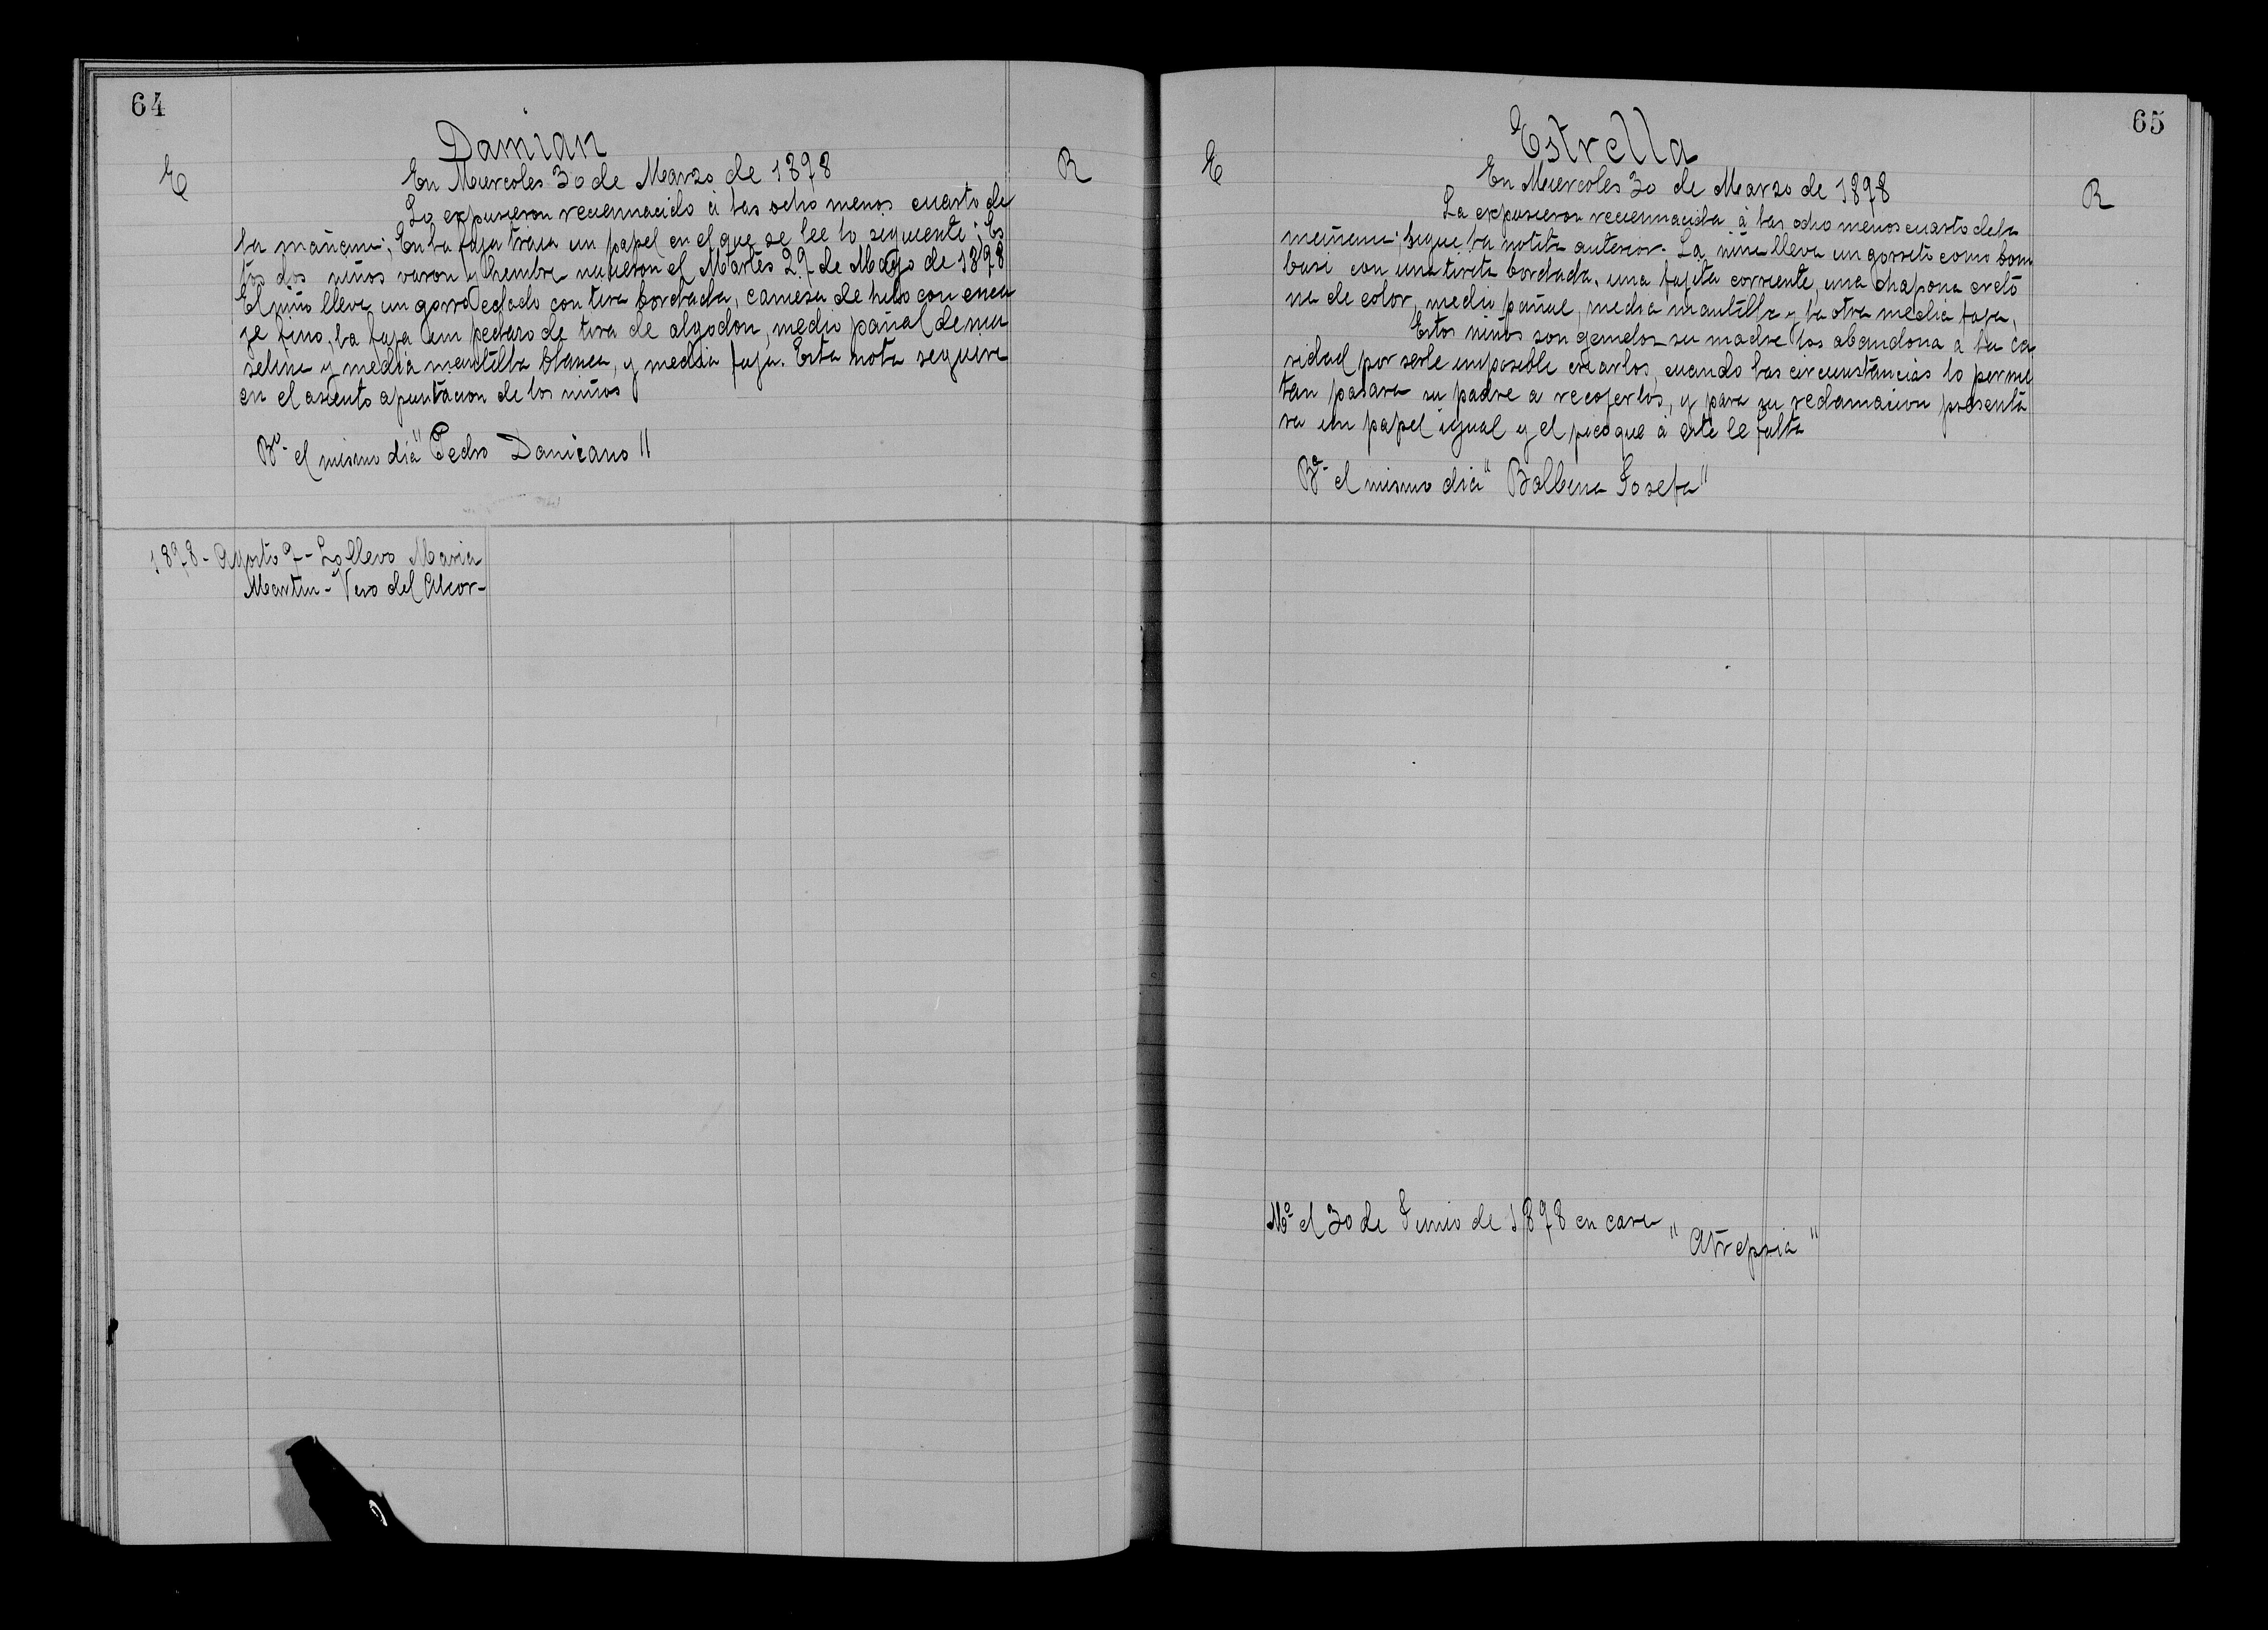 64
Damian
E
En Miercoles 30 de Marzo de 1898
R
Lo expusieron reciennacido á las ocho menos cuarto de
la mañana; En la faja traia un papel en el que se lee lo siguiente: Es
tos dos niños varon y hembra nacieron el Martes 29 de Março de 1898
El niño lleva un gorro calado con tira bordada, camisa de hilo con enca
je fino, la faja un pedazo de tira de algodon, medio pañal de mu
selina y media mantilla blanca, y media faja. Esta nota seguira
en el asiento apuntacion de los niños
Bº el mismo dia "Pedro Damiano"
1898 - Agosto 9 - Lo llevo Maria
Martin - Viso del Alcor -
65
Estrella
E
En Miercoles 30 de Marzo de 1898
R
La expusieron reciennacida á las ocho menos cuarto de la
mañana; sigue la notita anterior - La niña lleva un gorrito como bom
basi con una tirita bordada, una fajita corriente, una chapona creto
na de color, medio pañal, media mantilla y la otra media faja,
Estos niños son gemelos su madre los abandona a la ca
ridad por serle imposible criarlos, cuando las circunstancias lo permi
tan pasara su padre a recojerlos, y para su reclamacion presenta
ra un papel igual y el pico que a este le falta
Bª el mismo dia "Balbina Josefa"
Mº el 30 de Junio de 1898 en casa "Atrepsia"